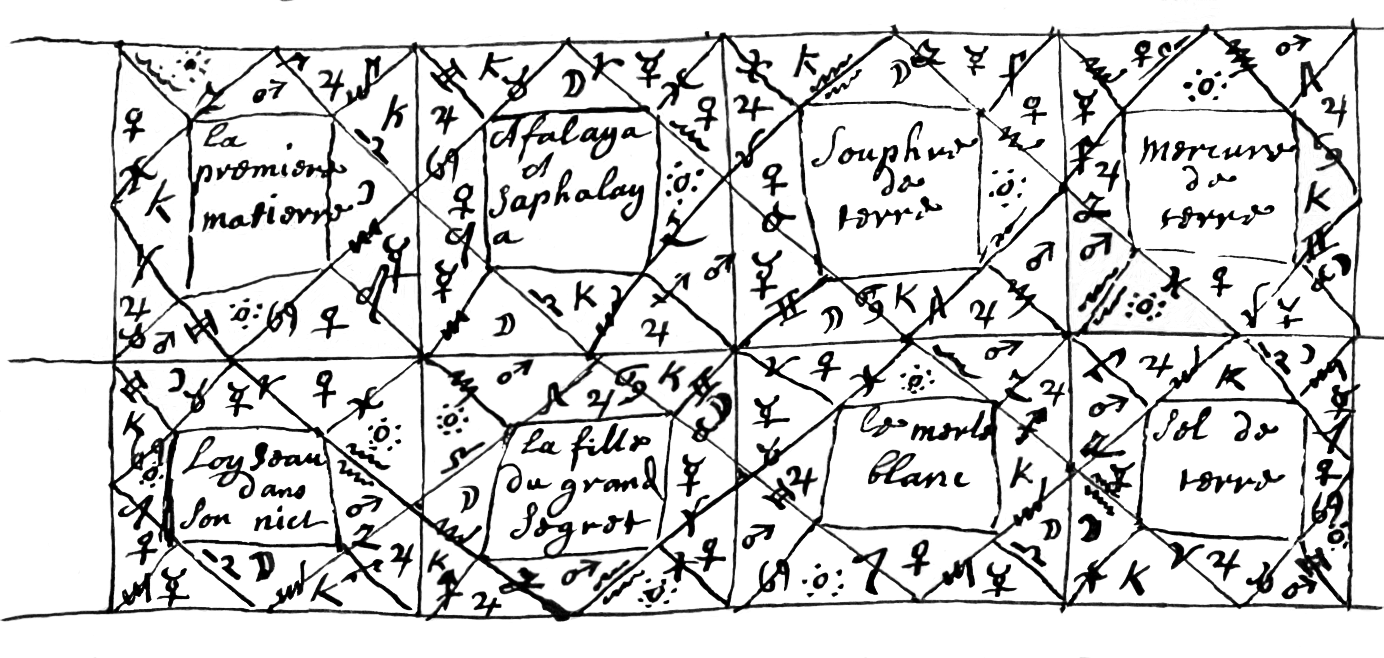 la
premiere
matierre
Afalaya
et
Saphalay
a
Souphre
de
terre
mercure
de
terre
Loyseau
dans
son nict
la fille
du grand
Segret
le merle
blanc
Sel de
terre